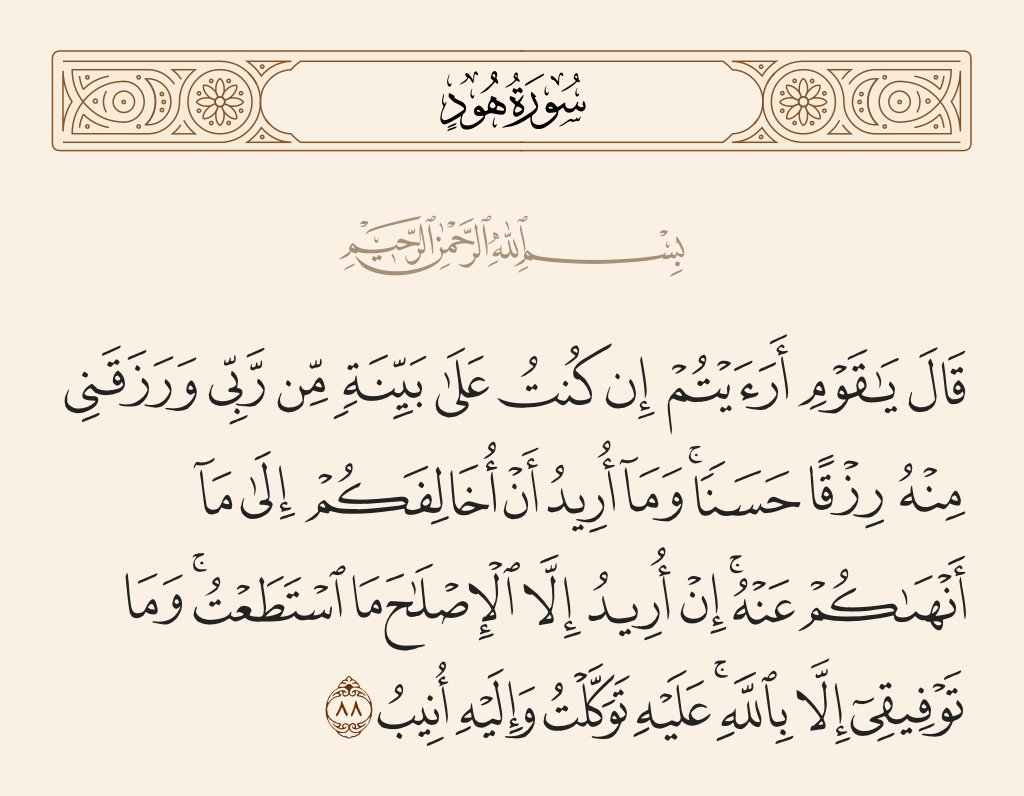 سُورَةُ هُودٍ
بِسْمِ ٱللَّهِ ٱلرَّحْمَٰنِ ٱلرَّحِيمِ
قَالَ يَـٰقَوْمِ أَرَءَيْتُمْ إِن كُنتُ عَلَىٰ بَيِّنَةٍ مِّن رَّبِّى وَرَزَقَنِى
مِنْهُ رِزْقًا حَسَنًا ۚ وَمَآ أُرِيدُ أَنْ أُخَالِفَكُمْ إِلَىٰ مَآ
أَنْهَىٰكُمْ عَنْهُ ۚ إِنْ أُرِيدُ إِلَّا ٱلْإِصْلَـٰحَ مَا ٱسْتَطَعْتُ ۚ وَمَا
تَوْفِيقِىٓ إِلَّا بِٱللَّهِ ۚ عَلَيْهِ تَوَكَّلْتُ وَإِلَيْهِ أُنِيبُ ٨٨